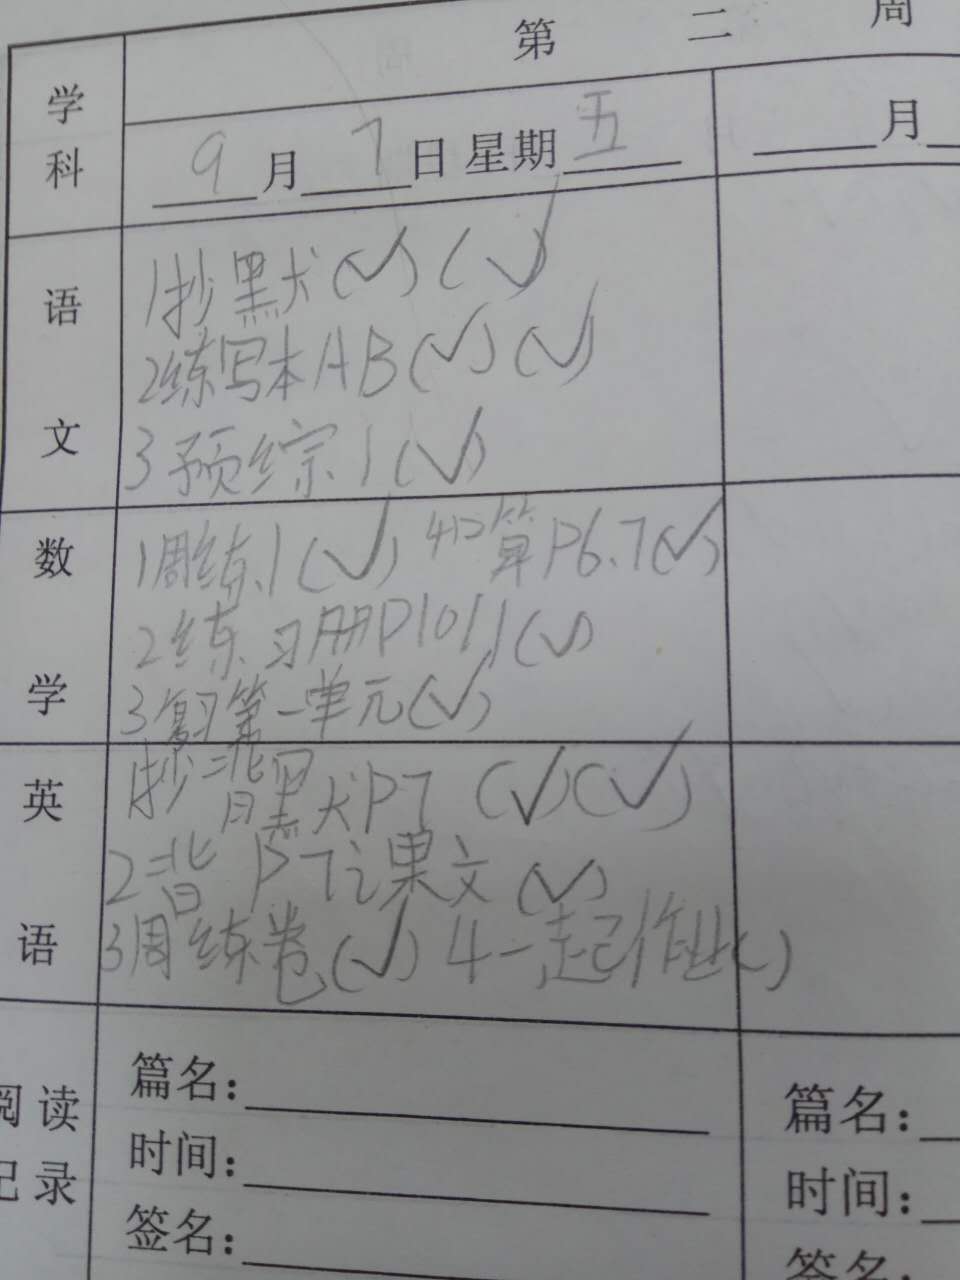 第 二 周
学科
9月7日星期五
月
语文
1抄默(√)(√)
2练写本AB(√)(√)
3预综1(√)
数学
1周练1(√) 4口算P6.7(√)
2练习册P10 11(√)
3复习第一单元(√)
英语
1抄背默P7 (√)(√)
2背P7课文(√)
3周练卷(√) 4一起作业( )
阅读记录
篇名: 篇名:
时间: 时间:
签名: 签名